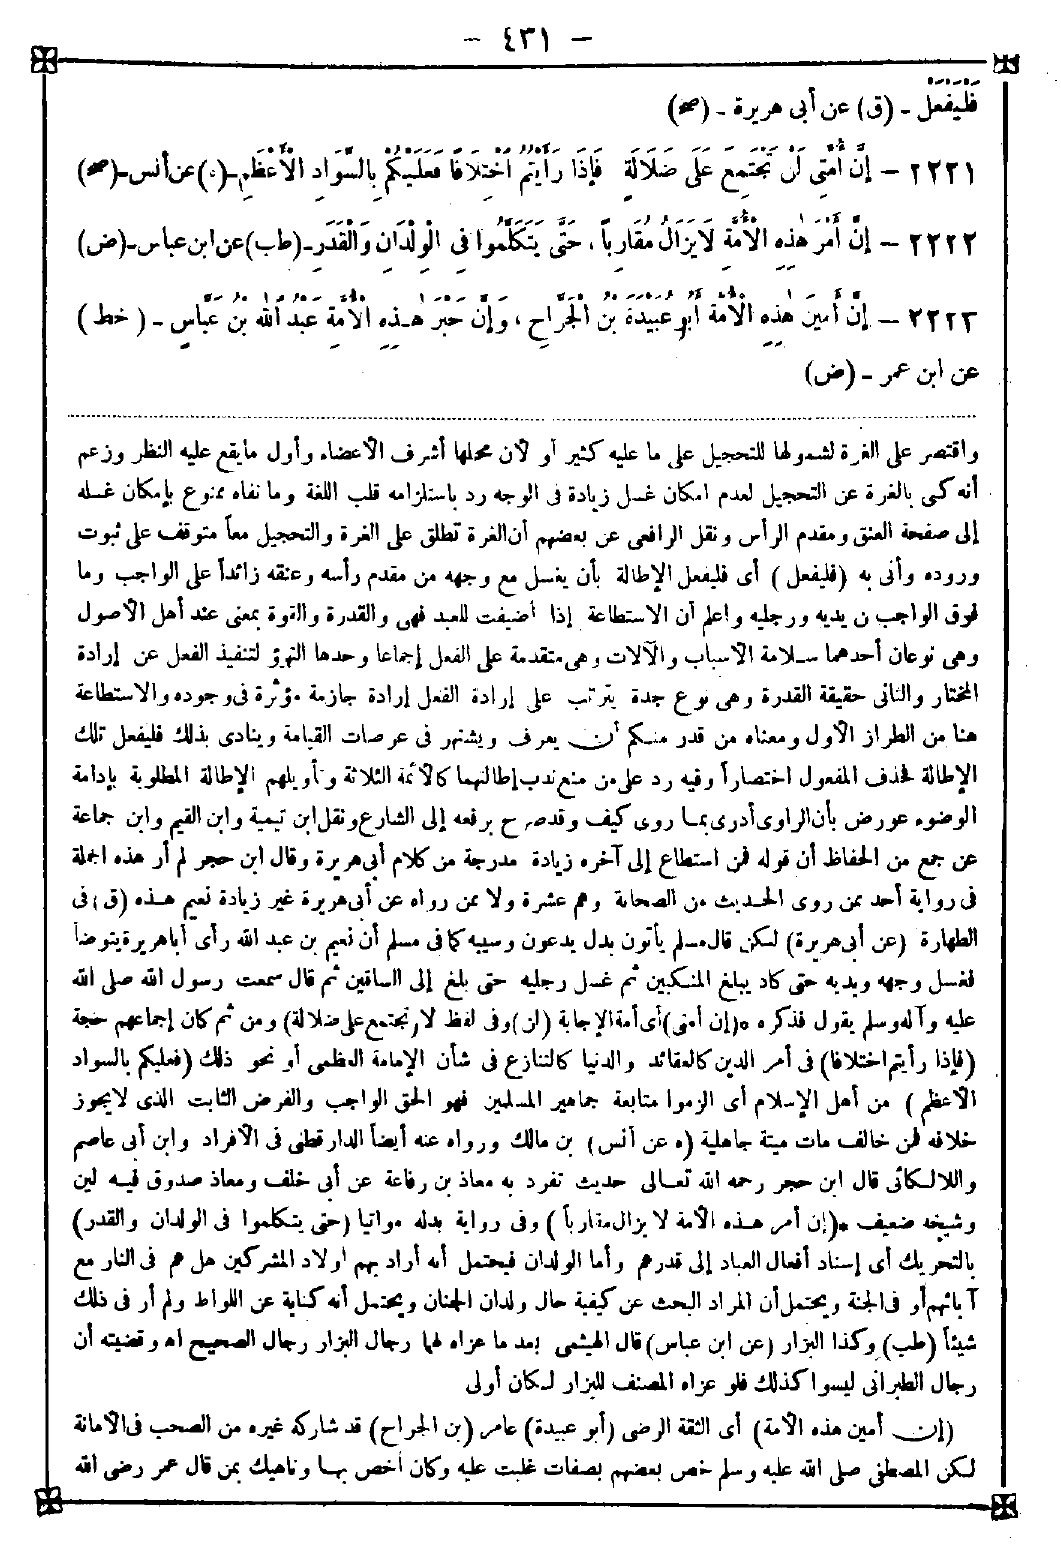 – ٤٣١ –
فَلْيَفْعَلْ - (ق) عن أبى هريرة - (صح)
٢٢٢١ – إنَّ أُمَّتِى لَنْ تَجْتَمِعَ عَلَى ضَلَالَةٍ فَإِذَا رَأَيْتُمُ اخْتِلَافًا فَعَلَيْكُمْ بِالسَّوَادِ الْأَعْظَمِ - (ه) عن أنس - (صح)
٢٢٢٢ – إنَّ أَمْرَ هٰذِهِ الْأُمَّةِ لَا يَزَالُ مُقَارِباً ، حَتَّى يَتَكَلَّمُوا فِى الْوِلْدَانِ وَالْقَدَرِ - (طب) عن ابن عباس - (ض)
٢٢٢٣ – إنَّ أَمِينَ هٰذِهِ الْأُمَّةِ أَبُو عُبَيْدَةَ بْنُ الْجَرَّاحِ ، وَإنَّ حَبْرَ هٰذِهِ الْأُمَّةِ عَبْدُ اللهِ بْنُ عَبَّاسٍ - ( خط )
عن ابن عمر - (ض)
واقتصر على الغرة لشمولها للتحجيل على ما عليه كثير أو لأن محلها أشرف الأعضاء وأول مايقع عليه النظر وزعم
أنه كنى بالغرة عن التحجيل لعدم امكان غسل زيادة فى الوجه رد باستلزامه قلب اللغة وما نفاه ممنوع بإمكان غسله
إلى صفحة العنق ومقدم الرأس ونقل الرافعى عن بعضهم أن الغرة تطلق على الغرة والتحجيل معاً متوقف على ثبوت
وروده وأنى به (فليفعل ) أى فليفعل الإطالة بأن يغسل مع وجهه من مقدم رأسه وعنقه زائداً على الواجب وما
فوق الواجب من يديه ورجليه واعلم أن الاستطاعة إذا أضيفت للعبد فهى والقدرة والقوة بمعنى عند أهل الأصول
وهى نوعان أحدهما سلامة الأسباب والآلات وهى متقدمة على الفعل إجماعا وحدها التهيؤ لتنفيذ الفعل عن إرادة
المختار والثانى حقيقة القدرة وهى نوع جدة يترتب على إرادة الفعل إرادة جازمة مؤثرة فى وجوده والاستطاعة
هنا من الطراز الأول ومعناه من قدر منكم أن يعرف ويشتهر فى عرصات القيامة وينادى بذلك فليفعل تلك
الإطالة فحذف المفعول اختصاراً وفيه رد على من منع ندب إطالتهما كالأئمة الثلاثة وتأويلهم الإطالة المطلوبة بإدامة
الوضوء عورض بأن الراوى أدرى بما روى كيف وقد صرح برفعه إلى الشارع ونقل ابن تيمية وابن القيم وابن جماعة
عن جمع من الحفاظ أن قوله فمن استطاع إلى آخره زيادة مدرجة من كلام أبى هريرة وقال ابن حجر لم أر هذه الجملة
فى رواية أحد ممن روى الحديث من الصحابة وهم عشرة ولا ممن رواه عن أبى هريرة غير زيادة نعيم هذه (ق) فى
الطهارة (عن أبى هريرة) لكن قال مسلم يأتون بدل يدعون وسببه كما فى مسلم أن نعيم بن عبد الله رأى أبا هريرة يتوضأ
فغسل وجهه ويديه حتى كاد يبلغ المنكبين ثم غسل رجليه حتى بلغ إلى الساقين ثم قال سمعت رسول الله صلى الله
عليه وآله وسلم يقول فذكره *(إن أمتى) أى أمة الإجابة (لن) وفى لفظ لا (تجتمع على ضلالة) ومن ثم كان إجماعهم حجة
(فإذا رأيتم اختلافا) فى أمر الدين كالعقائد والدنيا كالتنازع فى شأن الإمامة العظمى أو نحو ذلك (فعليكم بالسواد
الأعظم ) من أهل الإسلام أى الزموا متابعة جماهير المسلمين فهو الحق الواجب والفرض الثابت الذى لا يجوز
خلافه فمن خالف مات ميتة جاهلية (ه عن أنس) بن مالك ورواه عنه أيضاً الدارقطنى فى الأفراد وابن أبى عاصم
واللالكائى قال ابن حجر رحمه الله تعالى حديث تفرد به معاذ بن رفاعة عن أبى خلف ومعاذ صدوق فيه لين
وشيخه ضعيف *(إن أمر هذه الأمة لا يزال مقارباً ) وفى رواية بدله مواتيا (حتى يتكلموا فى الولدان والقدر)
بالتحريك أى إسناد أفعال العباد إلى قدرهم وأما الولدان فيحتمل أنه أراد بهم أولاد المشركين هل هم فى النار مع
آبائهم أو فى الجنة ويحتمل أن المراد البحث عن كيفية حال ولدان الجنان ويحتمل أنه كناية عن اللواط ولم أر فى ذلك
شيئاً (طب) وكذا البزار (عن ابن عباس) قال الهيثمى بعد ما عزاه لهما رجال البزار رجال الصحيح اه وقضيته أن
رجال الطبرانى ليسوا كذلك فلو عزاه المصنف للبزار لكان أولى
(إن أمين هذه الأمة) أى الثقة الرضى (أبو عبيدة) عامر (بن الجراح) قد شاركه غيره من الصحب فى الأمانة
لكن المصطفى صلى الله عليه وسلم خص بعضهم بصفات غلبت عليه وكان أخص بها وناهيك بمن قال عمر رضى الله